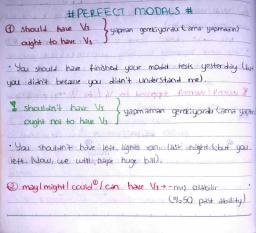 #PERFECT MODALS #
① should have V₃
ought to have V₃ } yapman gerekiyordu (ama yapmadın)
• You should have finished your modal tests yesterday (but
you didn't because you didn't understand me).
shouldn't have V₃
ought not to have V₃ } yapmaman gerekiyordu (ama yaptın
• You shouldn't have left lights on last night (but you
left. Now, we will have huge bill).
② may/might/could/can have V₃ → -mış olabilir
(%50 past ability)